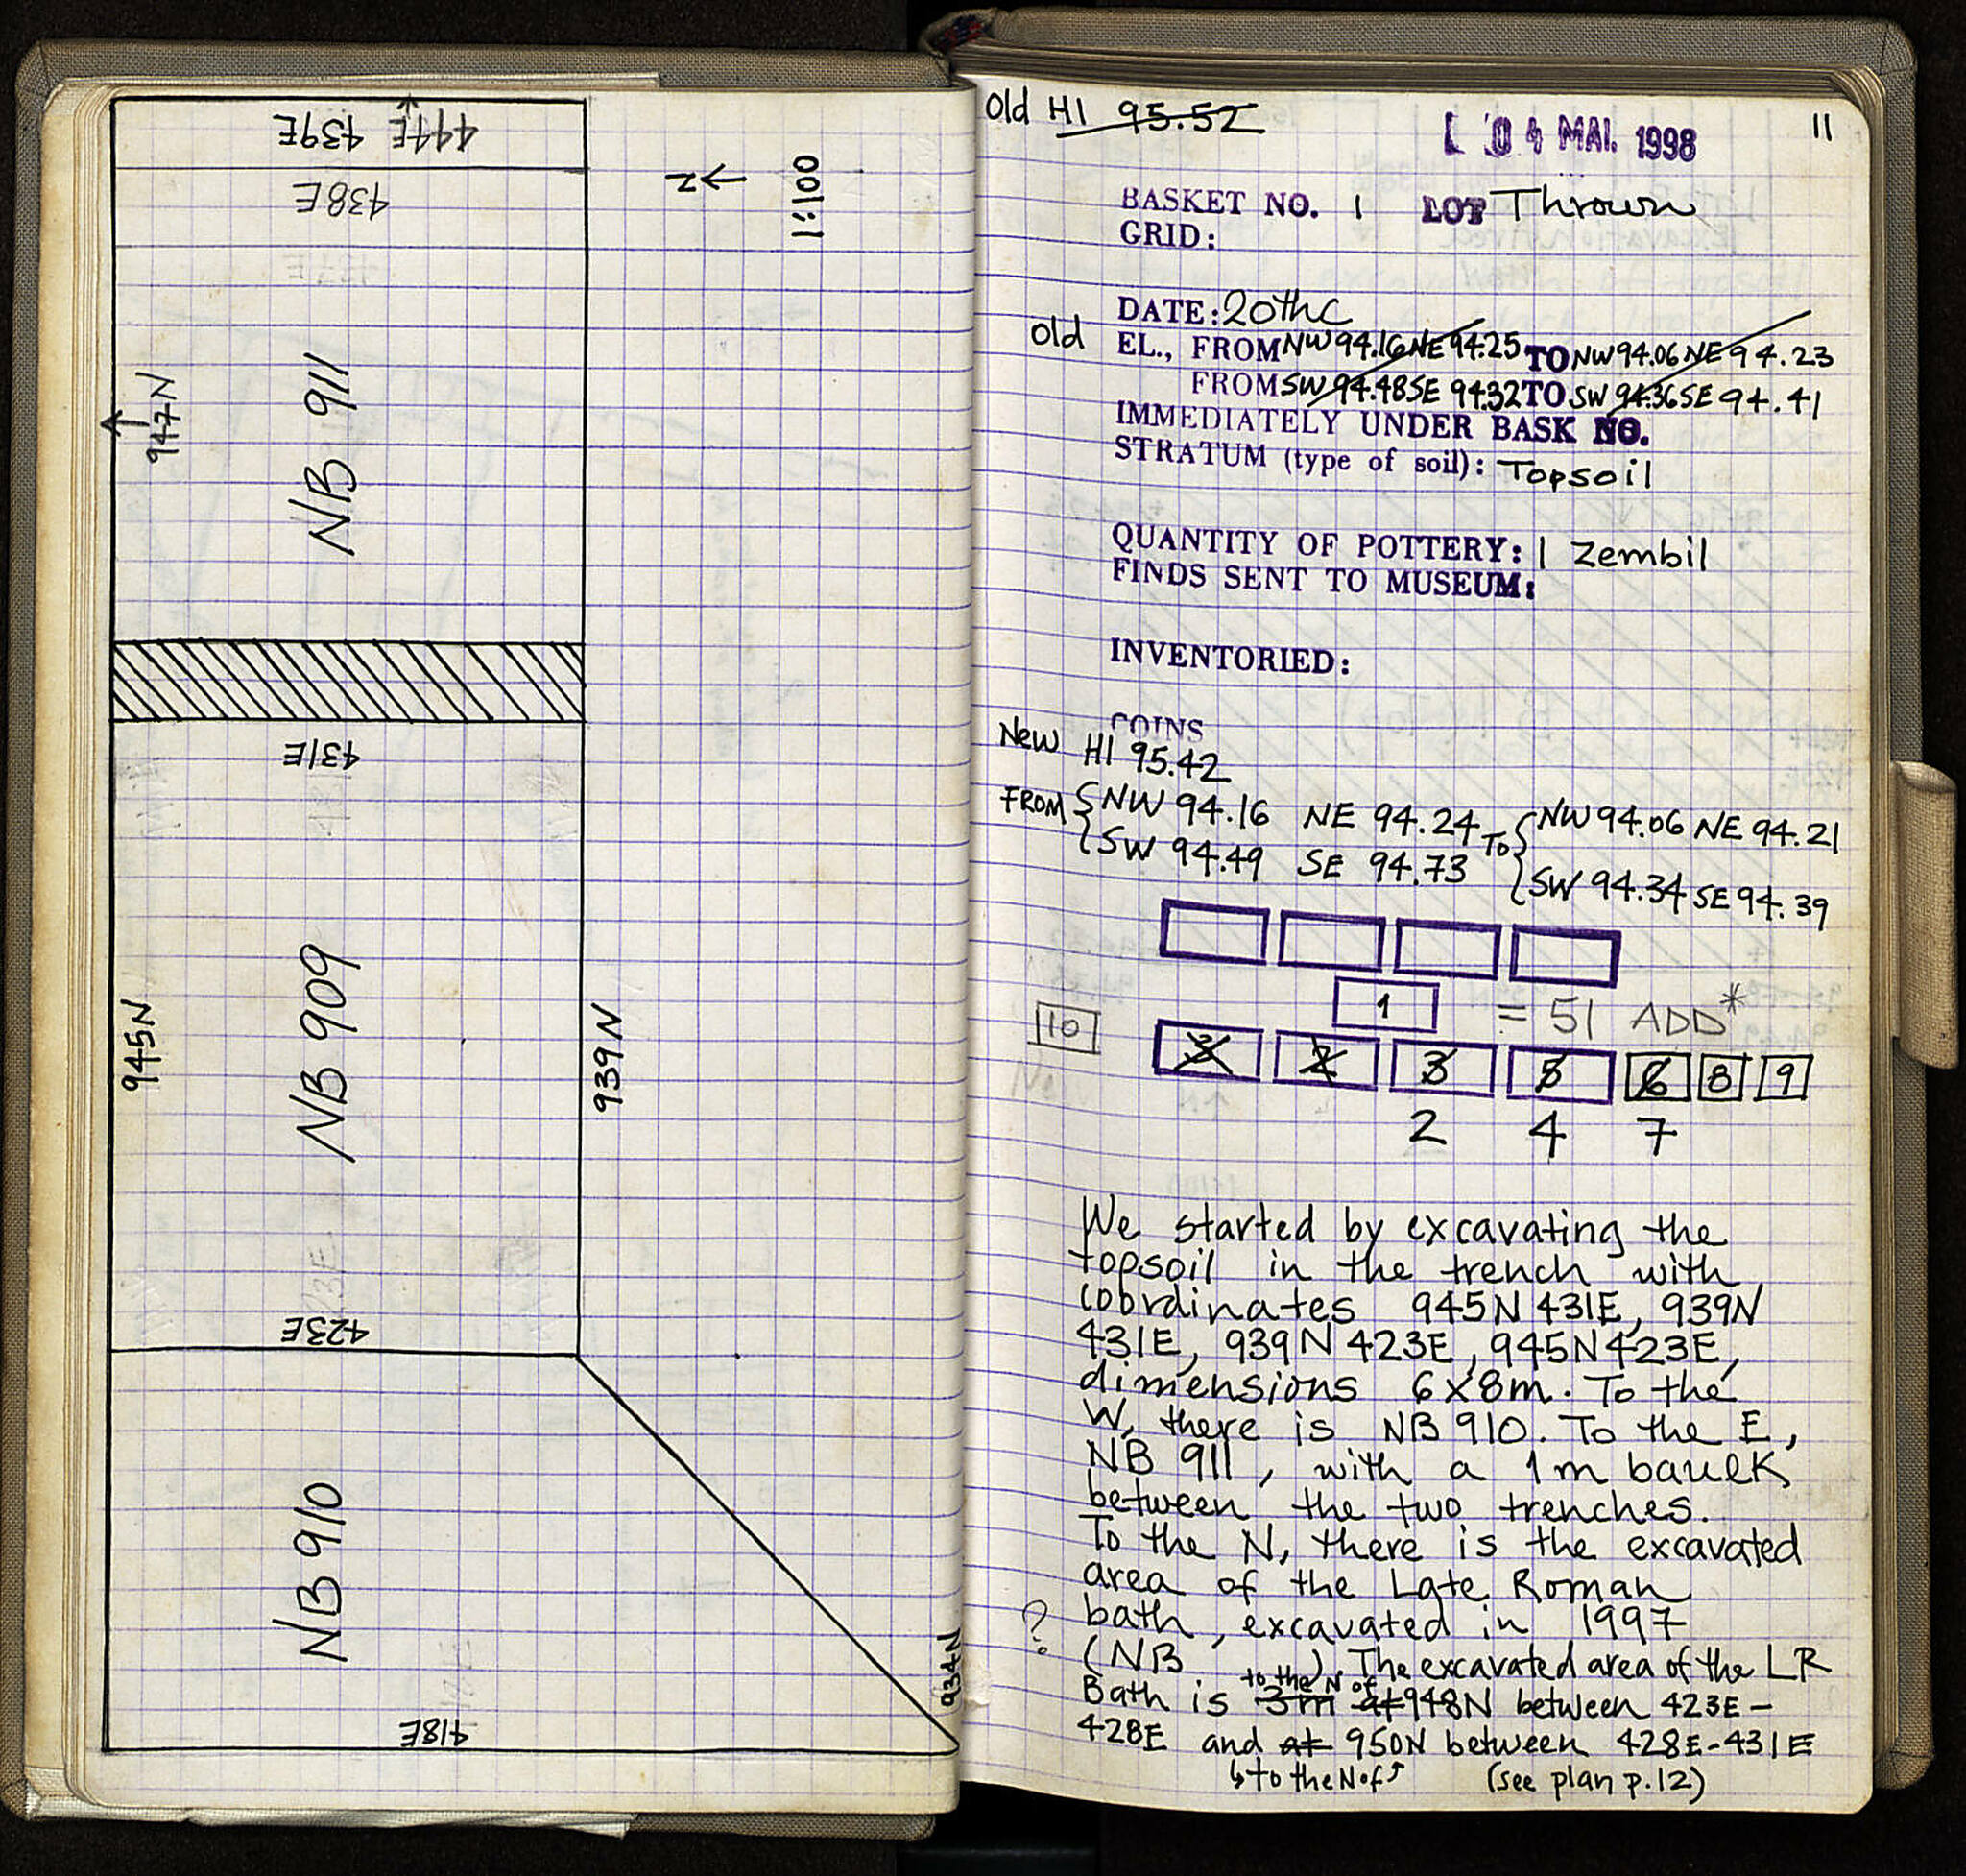 444E
439E
438E
1:100
N
947N
NB 911
431E
945N
NB 909
939N
423E
423E
NB 910
934N
418E
Old HI 95.52
04 MAI. 1998
11
BASKET NO. 1 LOT Thrown
GRID:
DATE: 20thc
Old EL., FROM NW 94.16 NE 94.25 TO NW 94.06 NE 94.23
FROM SW 94.48 SE 94.32 TO SW 94.36 SE 94.41
IMMEDIATELY UNDER BASK NO.
STRATUM (type of soil): Topsoil
QUANTITY OF POTTERY: 1 zembil
FINDS SENT TO MUSEUM:
INVENTORIED:
COINS
New HI 95.42
FROM { NW 94.16 NE 94.24 TO { NW 94.06 NE 94.21
SW 94.49 SE 94.73 SW 94.34 SE 94.39
1 = 51 ADD*
10
3 5 6 8 9
2 4 7
We started by excavating the
topsoil in the trench with
coordinates 945N 431E, 939N
431E, 939N 423E, 945N 423E,
dimensions 6x8m. To the
W, there is NB 910. To the E,
NB 911, with a 1m baulk
between the two trenches.
To the N, there is the excavated
area of the Late Roman
bath, excavated in 1997
? (NB ). The excavated area of the LR
to the N of
Bath is 3m at 948N between 423E-
428E and at 950N between 428E-431E
↳to the N of↑ (see plan p.12)